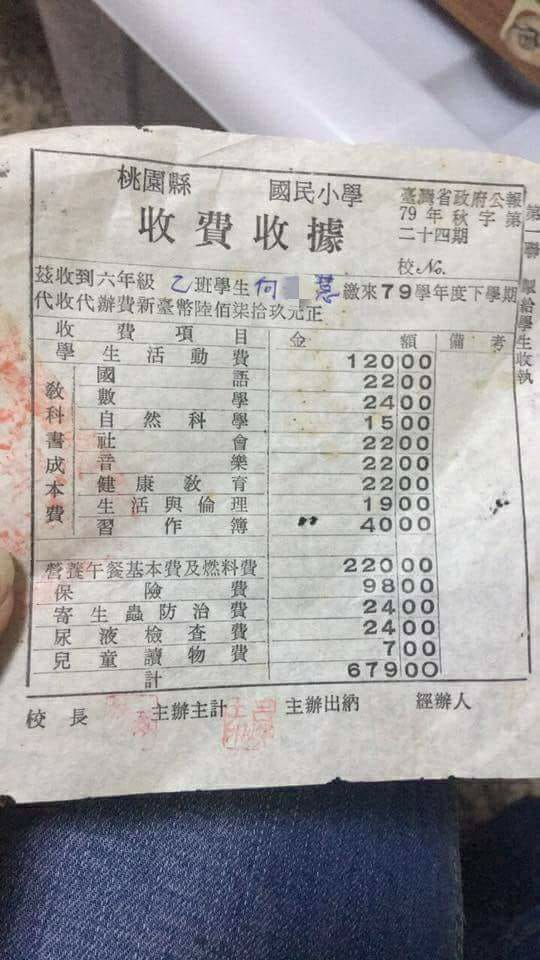 桃園縣 國民小學
收費收據
臺灣省政府公報
79年秋字第
二十四期
校No.
茲收到六年級乙班學生何 慧繳來79學年度下學期
代收代辦費新臺幣陸佰柒拾玖元正
收費項目 金額 備考
學生活動費 12000
教科書成本費
國語 2200
數學 2400
自然科學 1500
社會 2200
音樂 2200
健康教育 2200
生活與倫理 1900
習作簿 〃 4000
營養午餐基本費及燃料費 22000
保險費 9800
寄生蟲防治費 2400
尿液檢查費 2400
兒童讀物費 700
計 67900
校長 主辦主計 主辦出納 經辦人
第一聯 報給學生收執